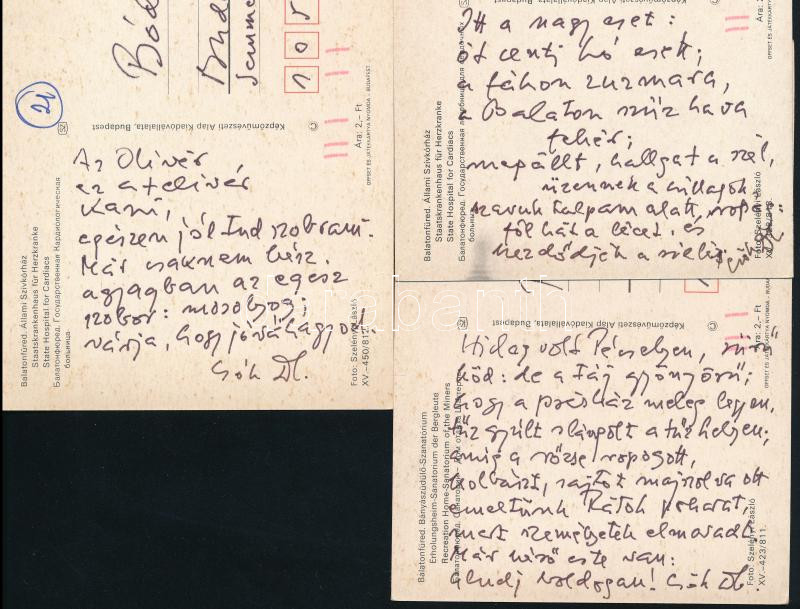 Az Olivér
ez a telivér
Kami,
egészen jól
Már csaknem kész.
agyagban az egész
szobor: mosolyog;
várja, hogy jóváhagyod
Csók
21
Bód
Buda
Semme
1 0 5
Képzőművészeti Alap Kiadóvállalata, Budapest
Ára: 2,– Ft
OFFSET ÉS JÁTÉKKÁRTYA NYOMDA – BUDAPEST
Balatonfüred. Állami Szívkórház
Staatskrankenhaus für Herzkranke
State Hospital for Cardiacs
Балатонфюред. Государственная Кардиологическая
больница
Foto: Szelényi László
XV.–450/812.
Itt a nagy eset:
öt centi hó esett;
a fákon zuzmara,
a Balaton szűz hava
fehér;
megállt, hallgat a szél,
üzennek a csillagok
szavuk talpam alatt,
föl hát a lécet, és
kezdődjék a síelés
Csók
Képzőművészeti Alap Kiadóvállalata, Budapest
Ára: 2
OFFSET ÉS JÁTÉKKÁRTYA NYOMDA
Balatonfüred. Állami Szívkórház
Staatskrankenhaus für Herzkranke
State Hospital for Cardiacs
Балатонфюред. Государственная
больница
Foto: Szelényi László
Hideg volt Pécselyen, sűrű
köd: de a táj gyönyörű;
hogy a présház meleg legyen,
tűz gyúlt s lángolt a tűzhelyen;
míg a rőzse ropogott,
kolbászt, sajtot majszolva ott
emeltünk Rátok poharat,
mert személyetek elmaradt.
Már késő este van:
Aludj boldogan! Csók
Képzőművészeti Alap Kiadóvállalata, Budapest
Ára: 2,– Ft
OFFSET ÉS JÁTÉKKÁRTYA NYOMDA
Balatonfüred. Bányászüdülő-Szanatórium
Erholungsheim-Sanatorium der Bergleute
Recreation Home-Sanatorium of the Miners
Foto: Szelényi László
XV.–423/811.